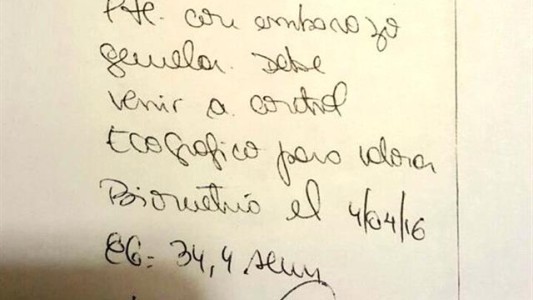 Pte. con embarazo
gemelar. Debe
venir a control
Ecografico para valorar
Biometria el 4/04/16
EG = 34,4 sem